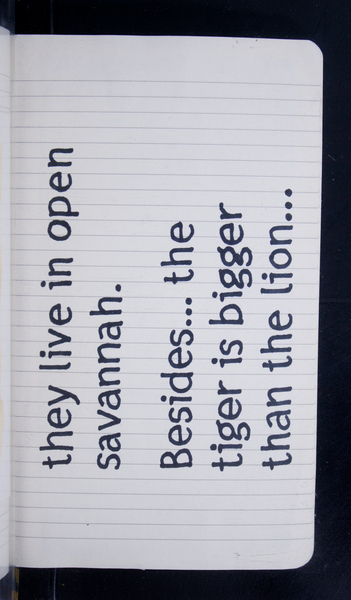 they live in open
savannah.
Besides... the
tiger is bigger
than the lion...